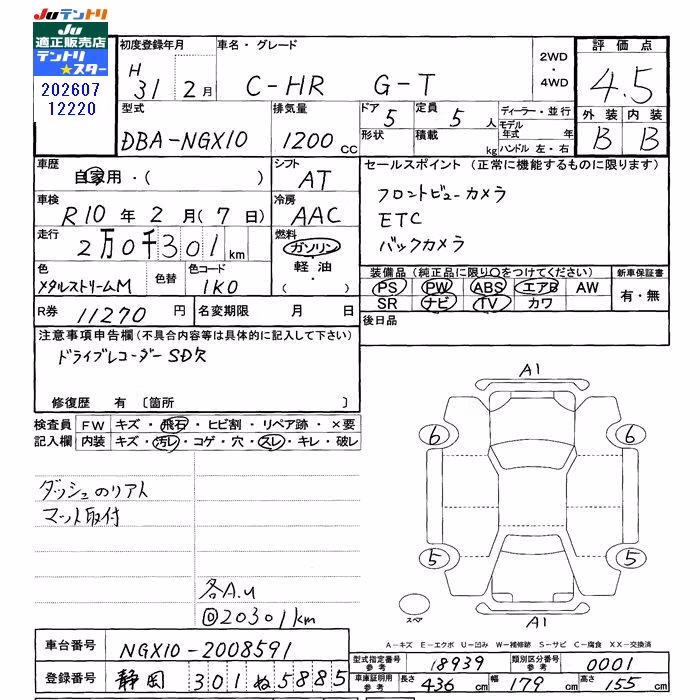 JUテントリ
JU
適正販売店
テントリ
★スター
202607
12220
初度登録年月
H
31年 2月
車名・グレード
C-HR G-T
2WD
・
4WD
評価点
4.5
外装 内装
B B
型式
DBA-NGX10
排気量
1200cc
ドア
5
定員
5人
形状
積載
kg
ディーラー・並行
モデル
年式 年
ハンドル 左・右
車歴
自家用・( )
シフト
AT
セールスポイント (正常に機能するものに限ります)
フロントビューカメラ
ETC
バックカメラ
車検
R10年2月(7日)
冷房
AAC
走行
2万0千301km
燃料
ガソリン
・
軽油
・
( )
色
メタルストリームM
色替
色コード
1K0
装備品 (純正品に限り○をつけてください)
PS PW ABS エアB AW
SR ナビ TV カワ
新車保証書
有・無
R券 11270円
名変期限 月 日
後日品
注意事項申告欄 (不具合内容等は具体的に記入して下さい)
ドライブレコーダーSD欠
修復歴 有 〔箇所 〕
検査員
記入欄
FW キズ・飛石・ヒビ割・リペア跡・×要
内装 キズ・汚レ・コゲ・穴・スレ・キレ・破レ
ダッシュのリアト
マット取付
各A.U
◎20301km
A1
6 6
5 5
A1
スペア
A-キズ E-エクボ U-凹み W-補修跡 S-サビ C-腐食 XX-交換済
車台番号 NGX10-2008591
登録番号 静岡 301 ぬ 5885
型式指定番号
参考
18939
類別区分番号
参考
0001
車庫証明用
参考
長さ 436cm 幅 179cm 高さ 155cm